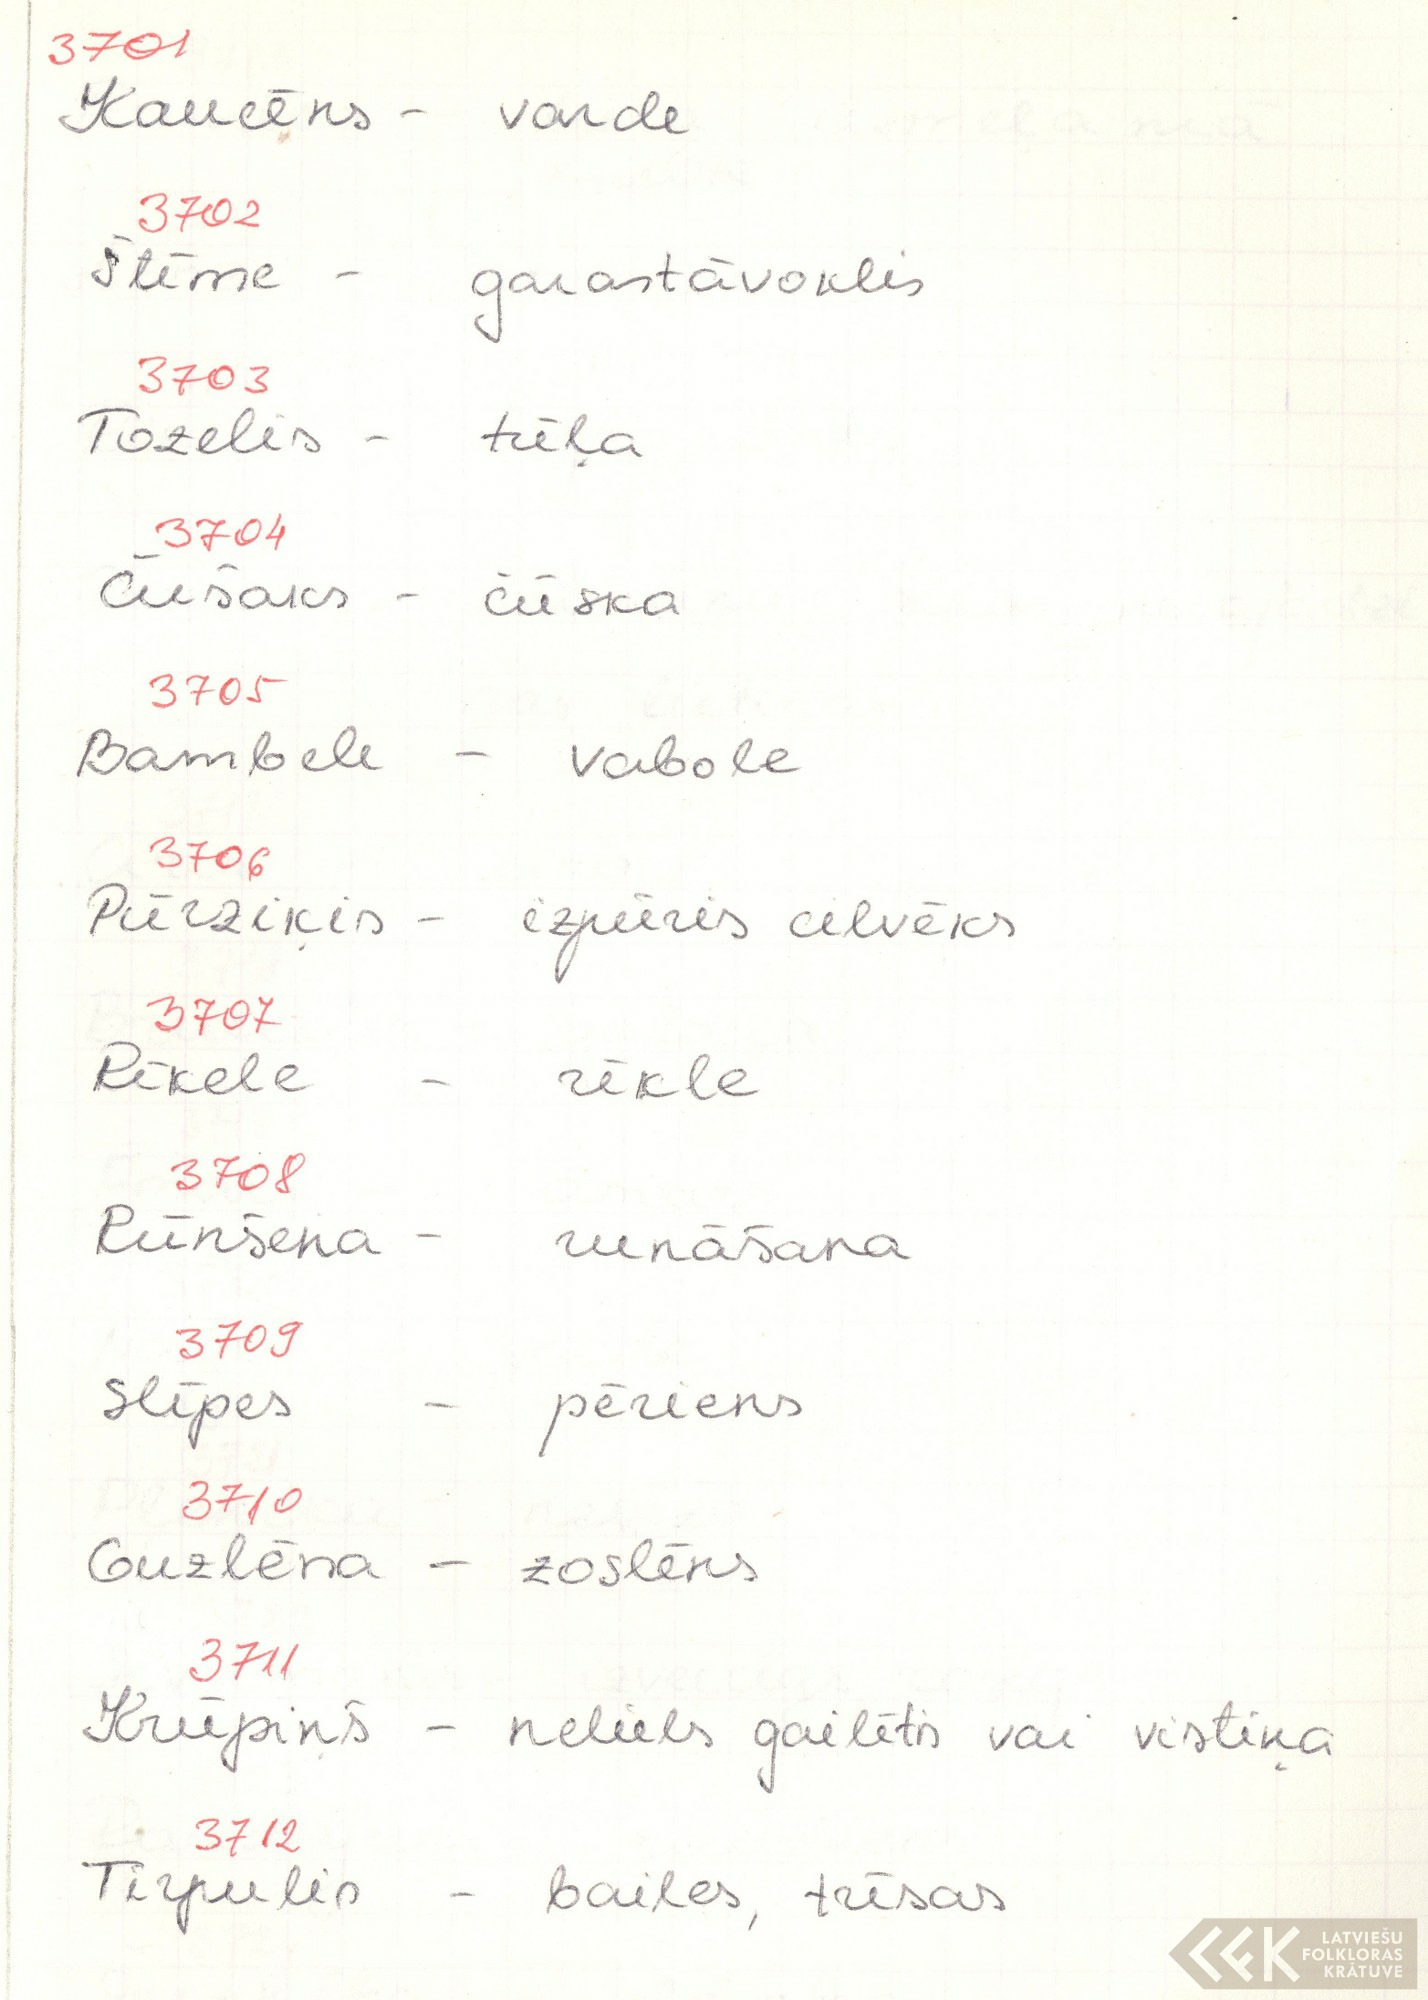 3701
Kaucēns - varde
3702
Štīme - garastāvoklis
3703
Tozelis - tūļa
3704
Čūšaks - čūska
3705
Bambele - vabole
3706
Pūrziķis - izpūris cilvēks
3707
Rīkele - rīkle
3708
Rūnšena - runāšana
3709
Slīpes - pēriens
3710
Guzlēna - zoslēns
3711
Krūpiņš - neliels gailītis vai vistiņa
3712
Tirpulis - bailes, trīsas
LATVIEŠU
FOLKLORAS
KRĀTUVE